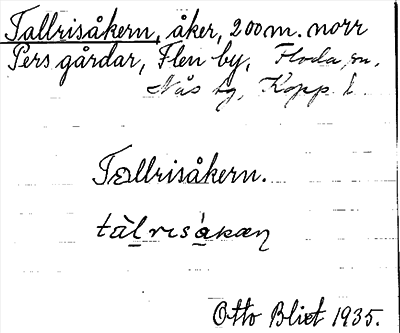 Tallrisåkern, åker, 200 m. norr
Pers gårdar, Flen by, Floda sn,
Nås tg, Kopp. l.
Tallrisåkern.
tàl̠risa̠̍kæn̥
Otto Blixt 1935.